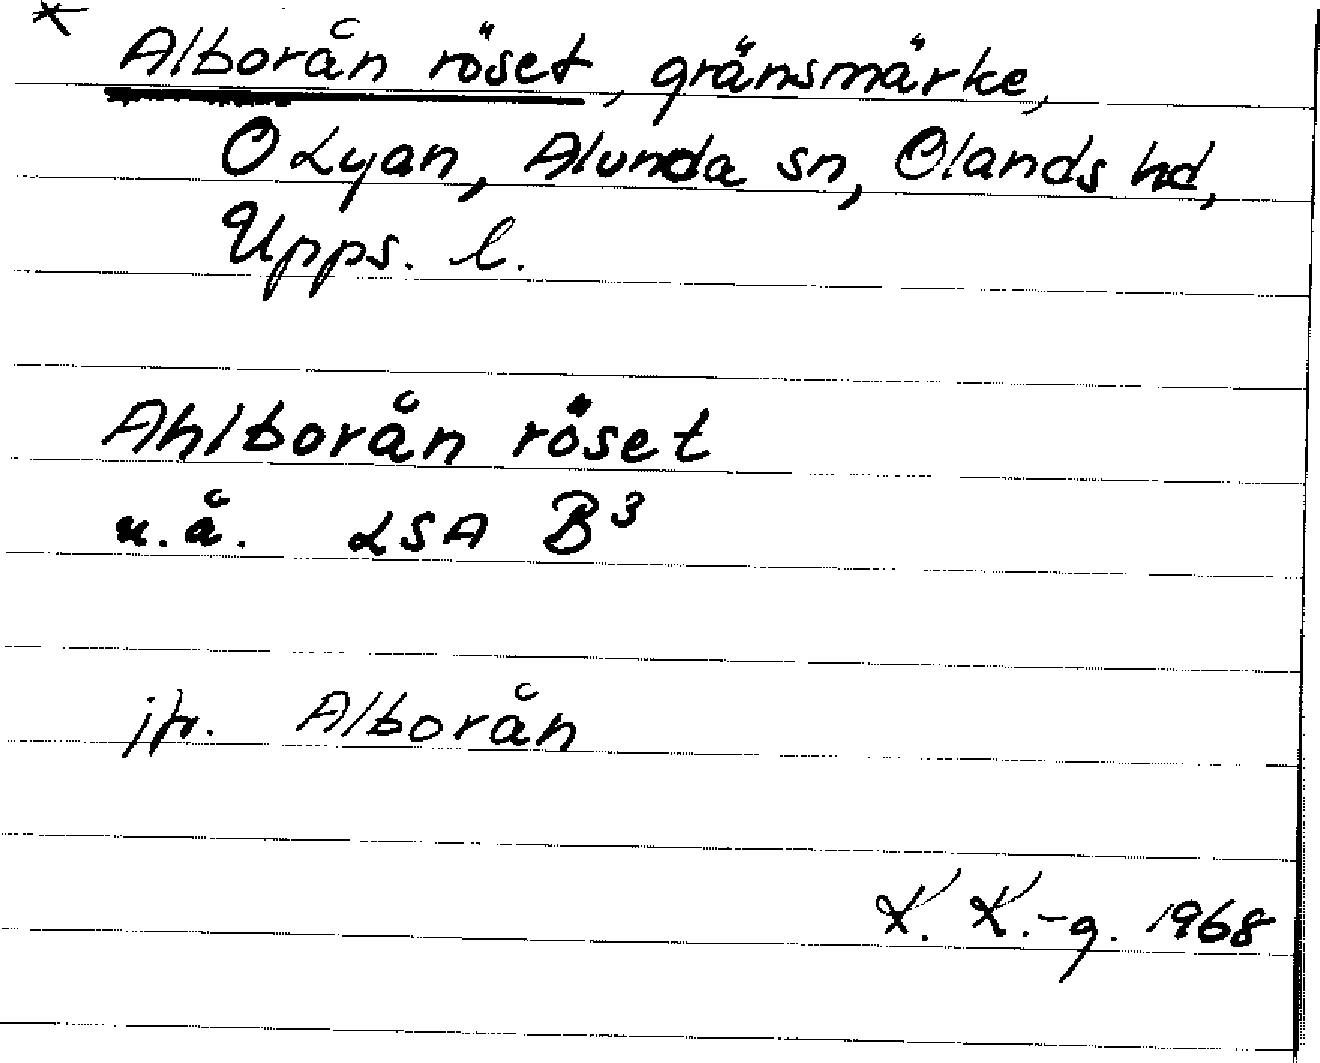 * Alborån röset, gränsmärke,
O Lyan, Alunda sn, Olands hd,
Upps. l.
Ahlborån röset
u.å. LSA B³
jfr. Alborån
K. K.-g. 1968